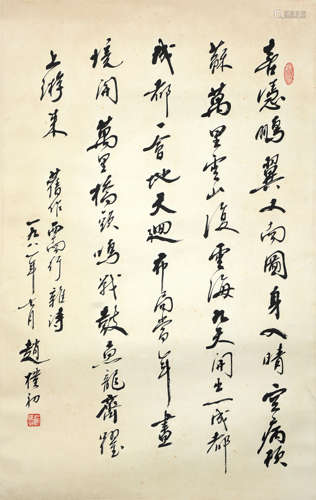 喜凭鹏翼又向图身入晴空病顿
苏万里云山复云海九天开出一成都
成都一会地天回币问当年画
境开万里桥头鸣战鼓鱼龙齐跃
上游来
旧作西南行杂诗
一九八一年七月 赵朴初